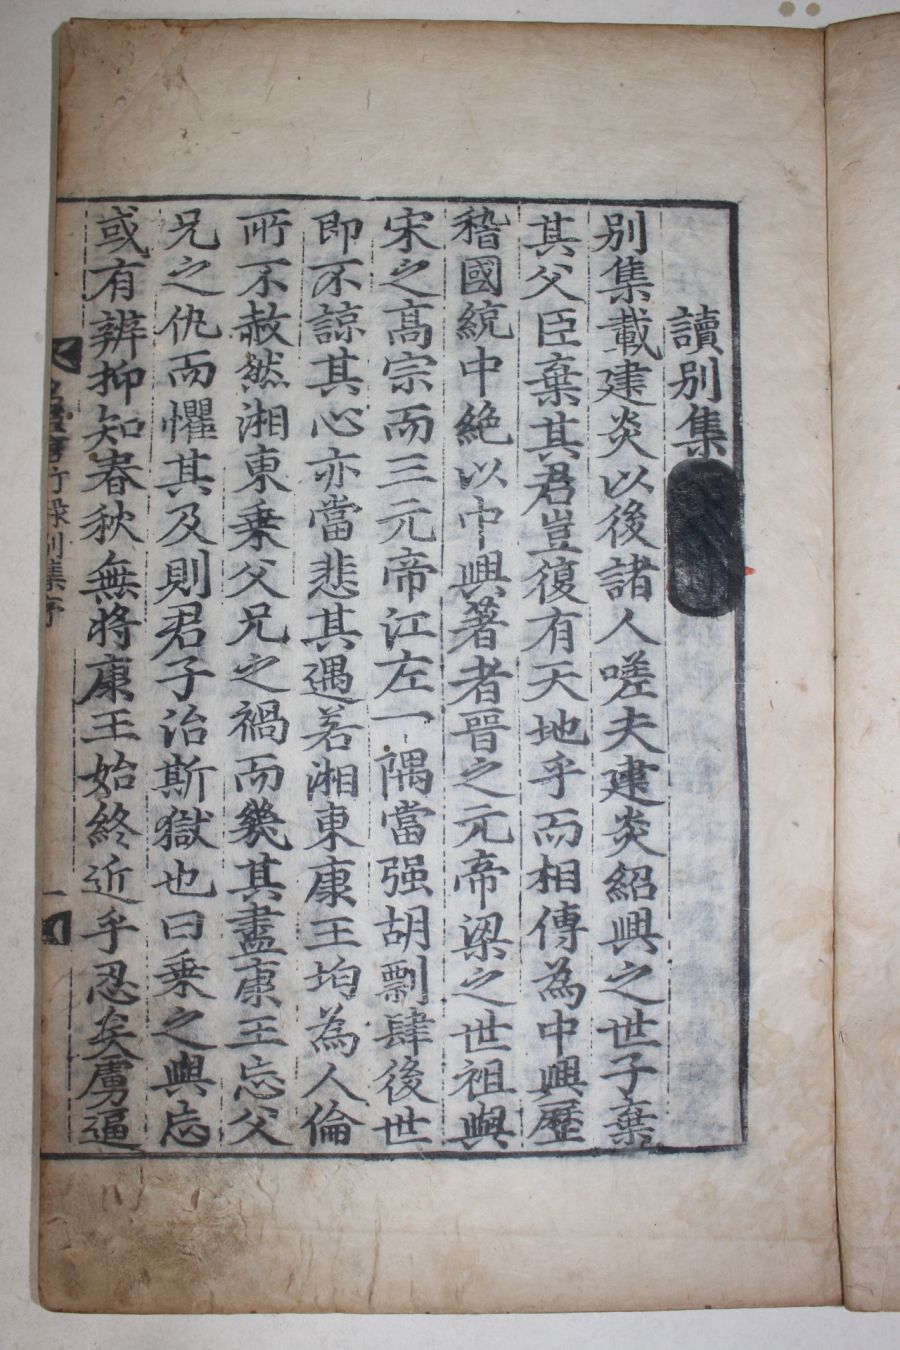 讀別集
別集載建炎以後諸人嗟夫建炎紹興之世子棄
其父臣棄其君豈復有天地乎而相傳為中興歷
稽國統中絶以中興著者晉之元帝梁之世祖與
宋之高宗而三元帝江左一隅當强胡剽肆後世
即不諒其心亦當悲其遇若湘東康王均為人倫
所不赦然湘東乗父兄之禍而幾其盡康王忘父
兄之仇而懼其及則君子治斯獄也曰乗之與忘
或有辨抑知春秋無將康王始終近乎忍矣虜逼
名臣言行錄別集序
一